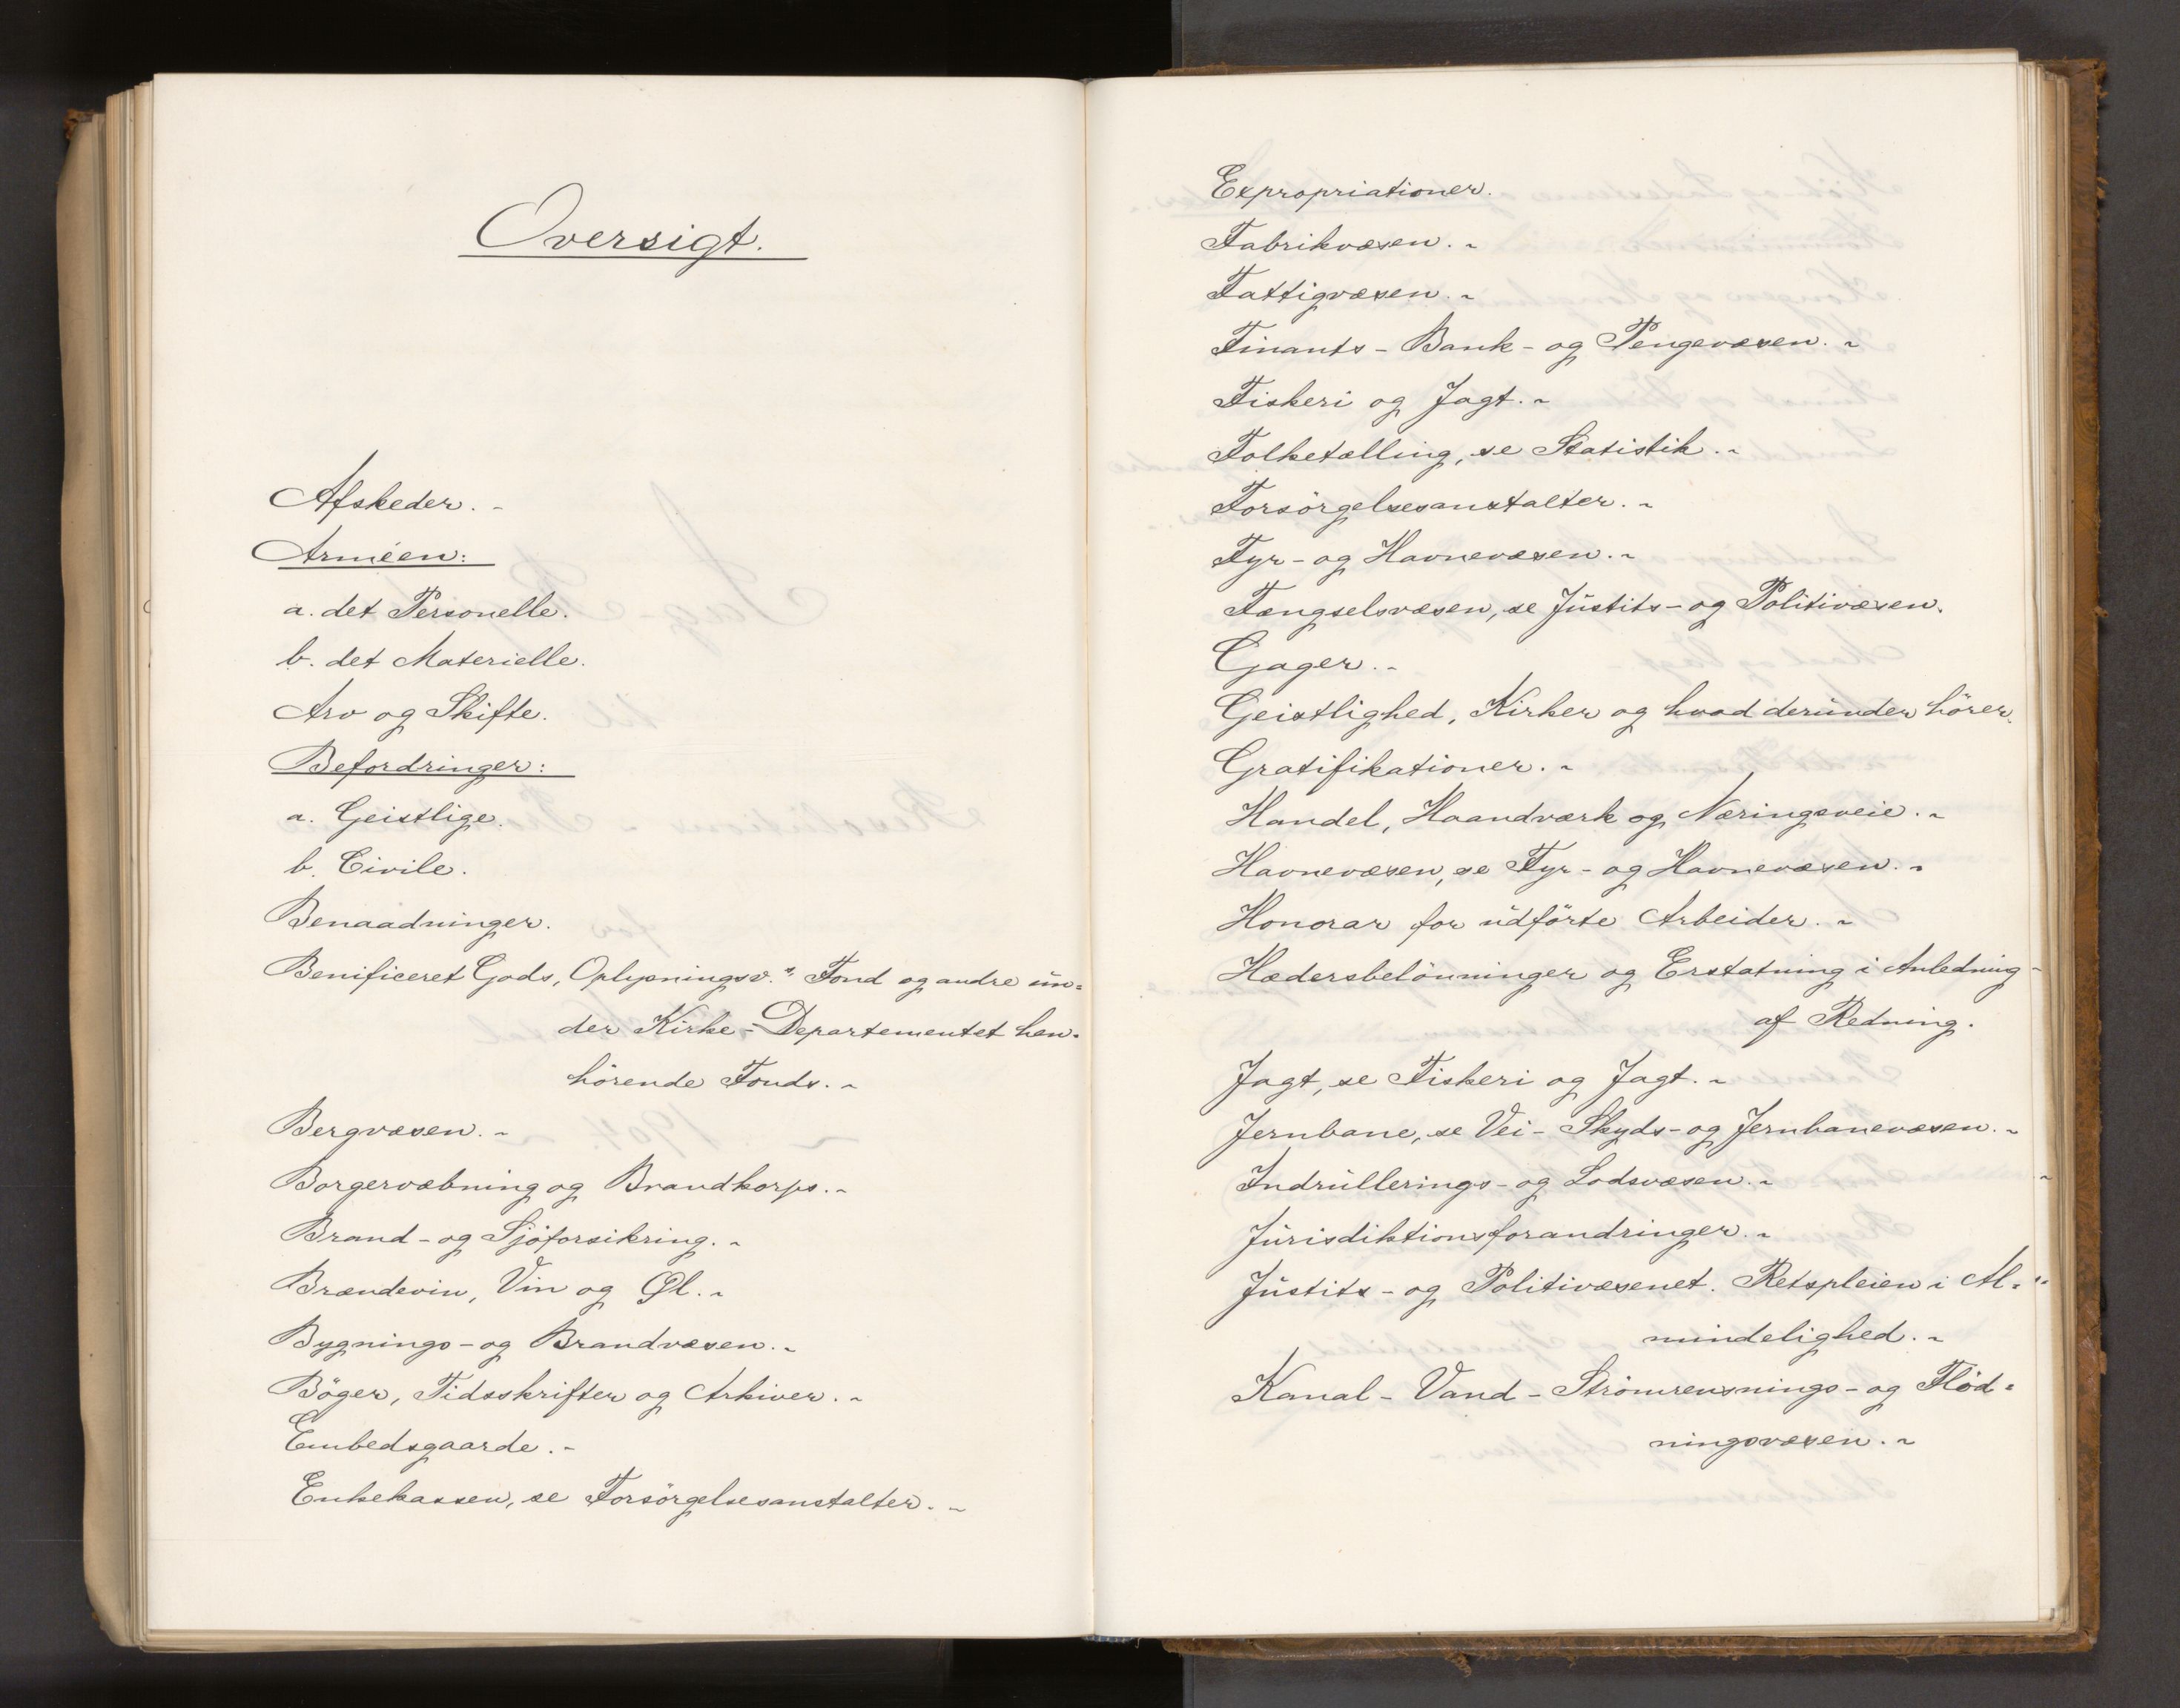 Oversigt.
Afskeder. -
Arméen:
a. det Personelle.
b. det Materielle.
Arv og Skifte.
Befordringer:
a. Geistlige.
b. Civile.
Benaadninger.
Benificeret Gods, Oplysningsv.s Fond og andre un=
der Kirke-Departementet hen=
hörende Fonds. ~
Bergvæsen. ~
Borgervæbning og Brandkorps. ~
Brand- og Sjöforsikring. ~
Brændevin, Vin og Øl. ~
Bygnings- og Brandvæsen. ~
Böger, Tidsskrifter og Arkiver. ~
Embedsgaarde. ~
Enkekassen, se Forsörgelsesanstalter. ~
Expropriationer.
Fabrikvæsen. ~
Fattigvæsen. ~
Finants- Bank- og Pengevæsen. ~
Fiskeri og Jagt. ~
Folketælling, se Statistik. ~
Forsörgelsesanstalter. ~
Fyr- og Havnevæsen. ~
Fængselsvæsen, se Justits- og Politivæsen.
Gager. ~
Geistlighed, Kirker og hvad derunder hörer.
Gratifikationer. ~
Handel, Haandværk og Næringsveie. ~
Havnevæsen, se Fyr- og Havnevæsen. ~
Honorar for udförte Arbeider. ~
Hædersbelönninger og Erstatning i Anledning
af Redning.
Jagt, se Fiskeri og Jagt. ~
Jernbane, se Vei- Skyds- og Jernbanevæsen. ~
Indrullerings- og Lodsvæsen. ~
Jurisdiktionsforandringer. ~
Justits- og Politivæsenet. Retspleien i Al=
mindelighed. ~
Kanal- Vand- Strömrensnings- og Flöd=
ningsvæsen. ~